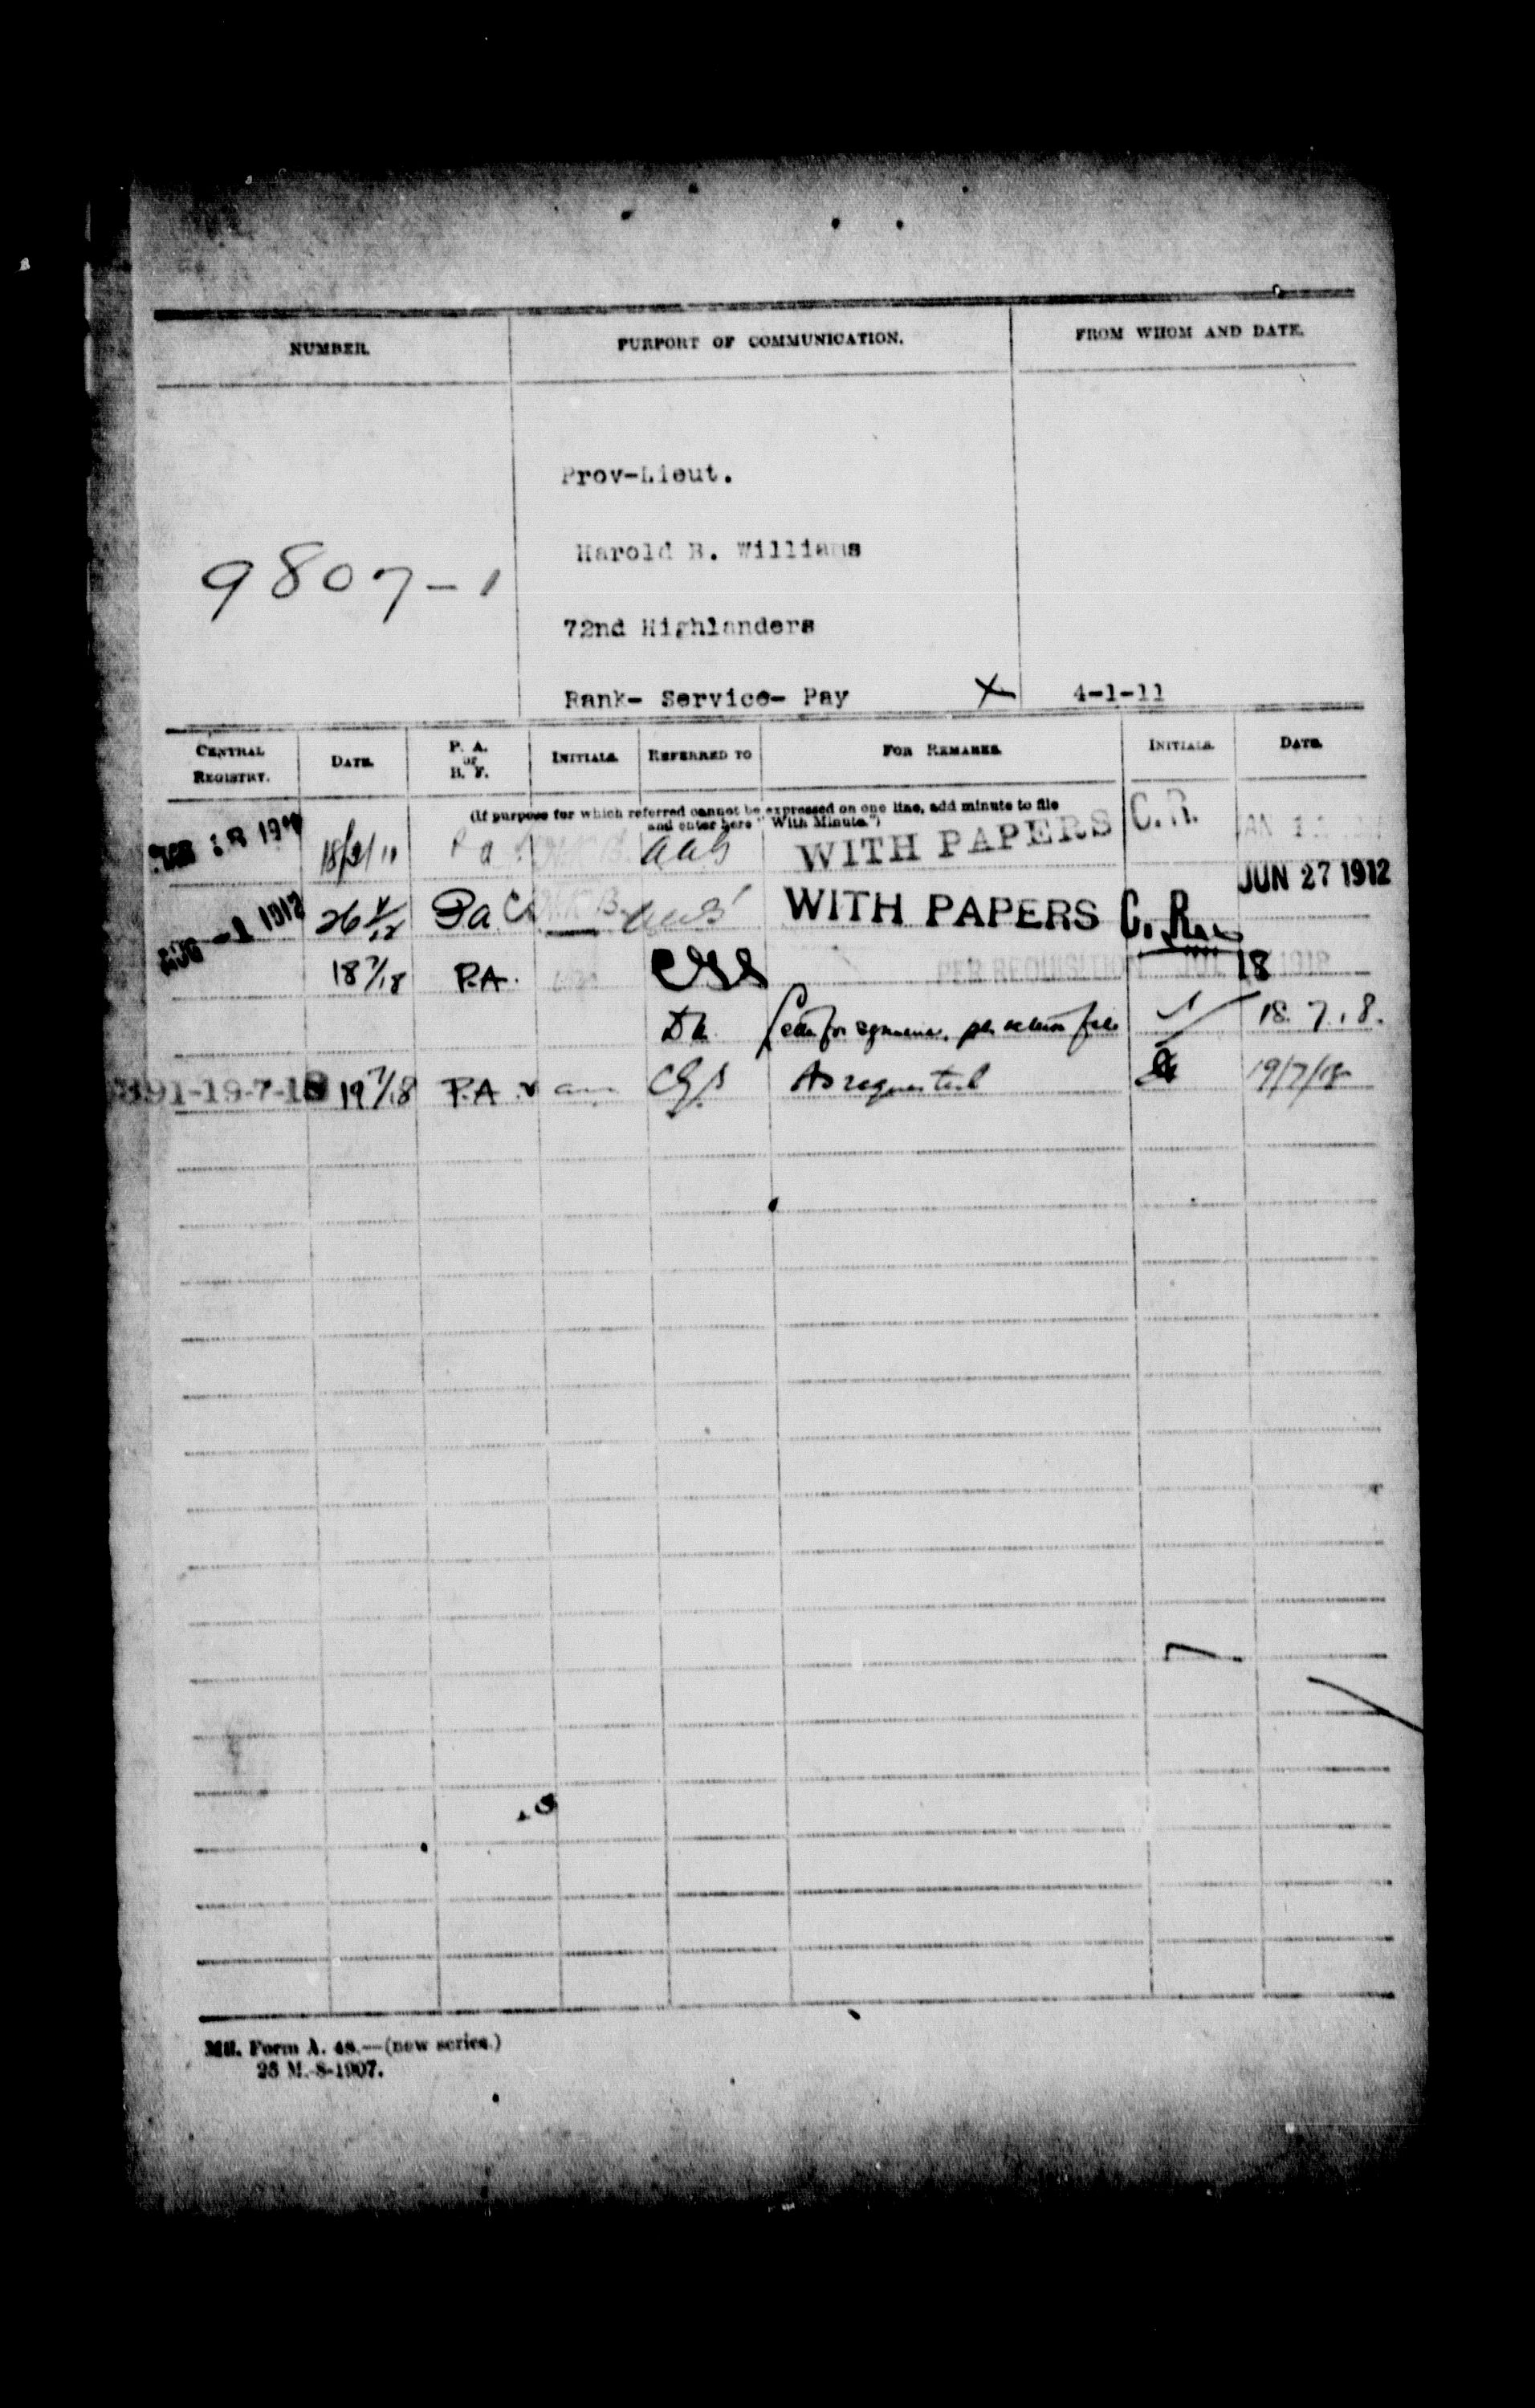 NUMBER. PURPORT OF COMMUNICATION. FROM WHOM AND DATE.
Prov-Lieut.
Harold B. Williams
9807-1
72nd Highlanders
Rank- Service- Pay X 4-1-11
CENTRAL REGISTRY. DATE. P. A. or B. F. INITIALS. REFERRED TO FOR REMARKS. INITIALS. DATE.
(If purpose for which referred cannot be expressed on one line, add minute to file
and enter here "With Minute.")
18/2/11 P a WITH PAPERS C.R.
AUG -1 1912 Pa WITH PAPERS C. R. JUN 27 1912
18 7/18 P.A. PER REQUISITION 18
for return file 18.7.18.
91-19-7-18 19 7/18 P.A. CGS As requested 19/7/18
Mil. Form A. 48.—(new series.)
25 M.-8-1907.